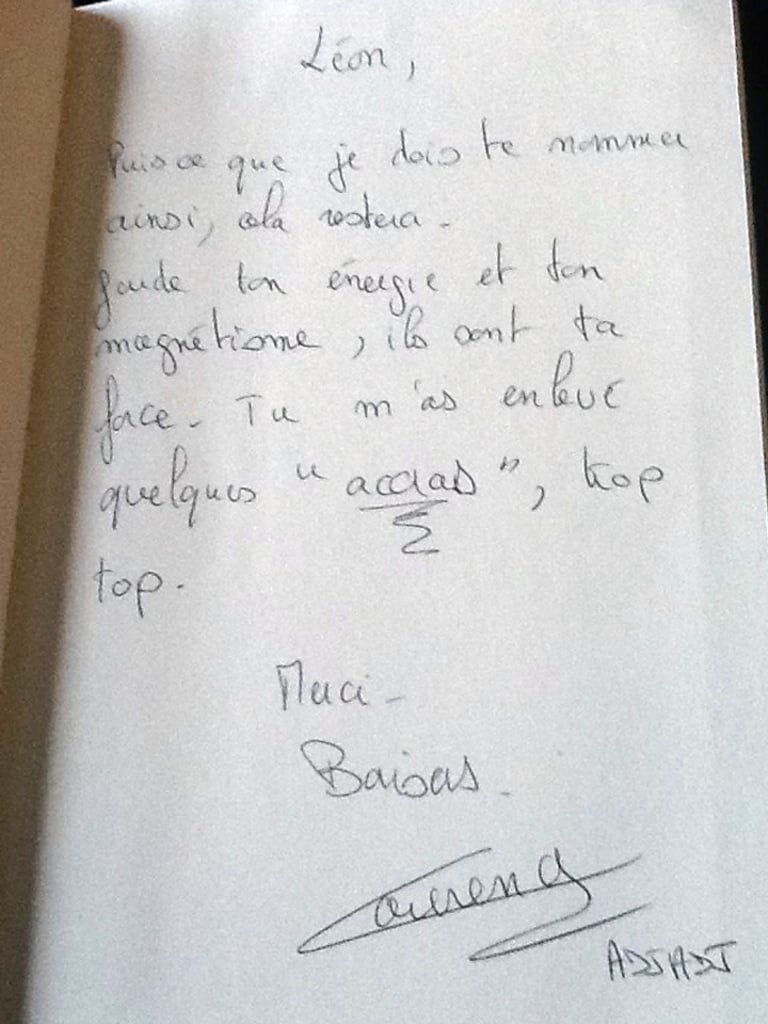 Léon,
Puisce que je dois te nommer
ainsi, cela restera.
Garde ton énergie et ton
magnétisme, ils sont ta
force. Tu m'as enlevé
quelques " accras ", trop
top.
Merci -
Baisers.